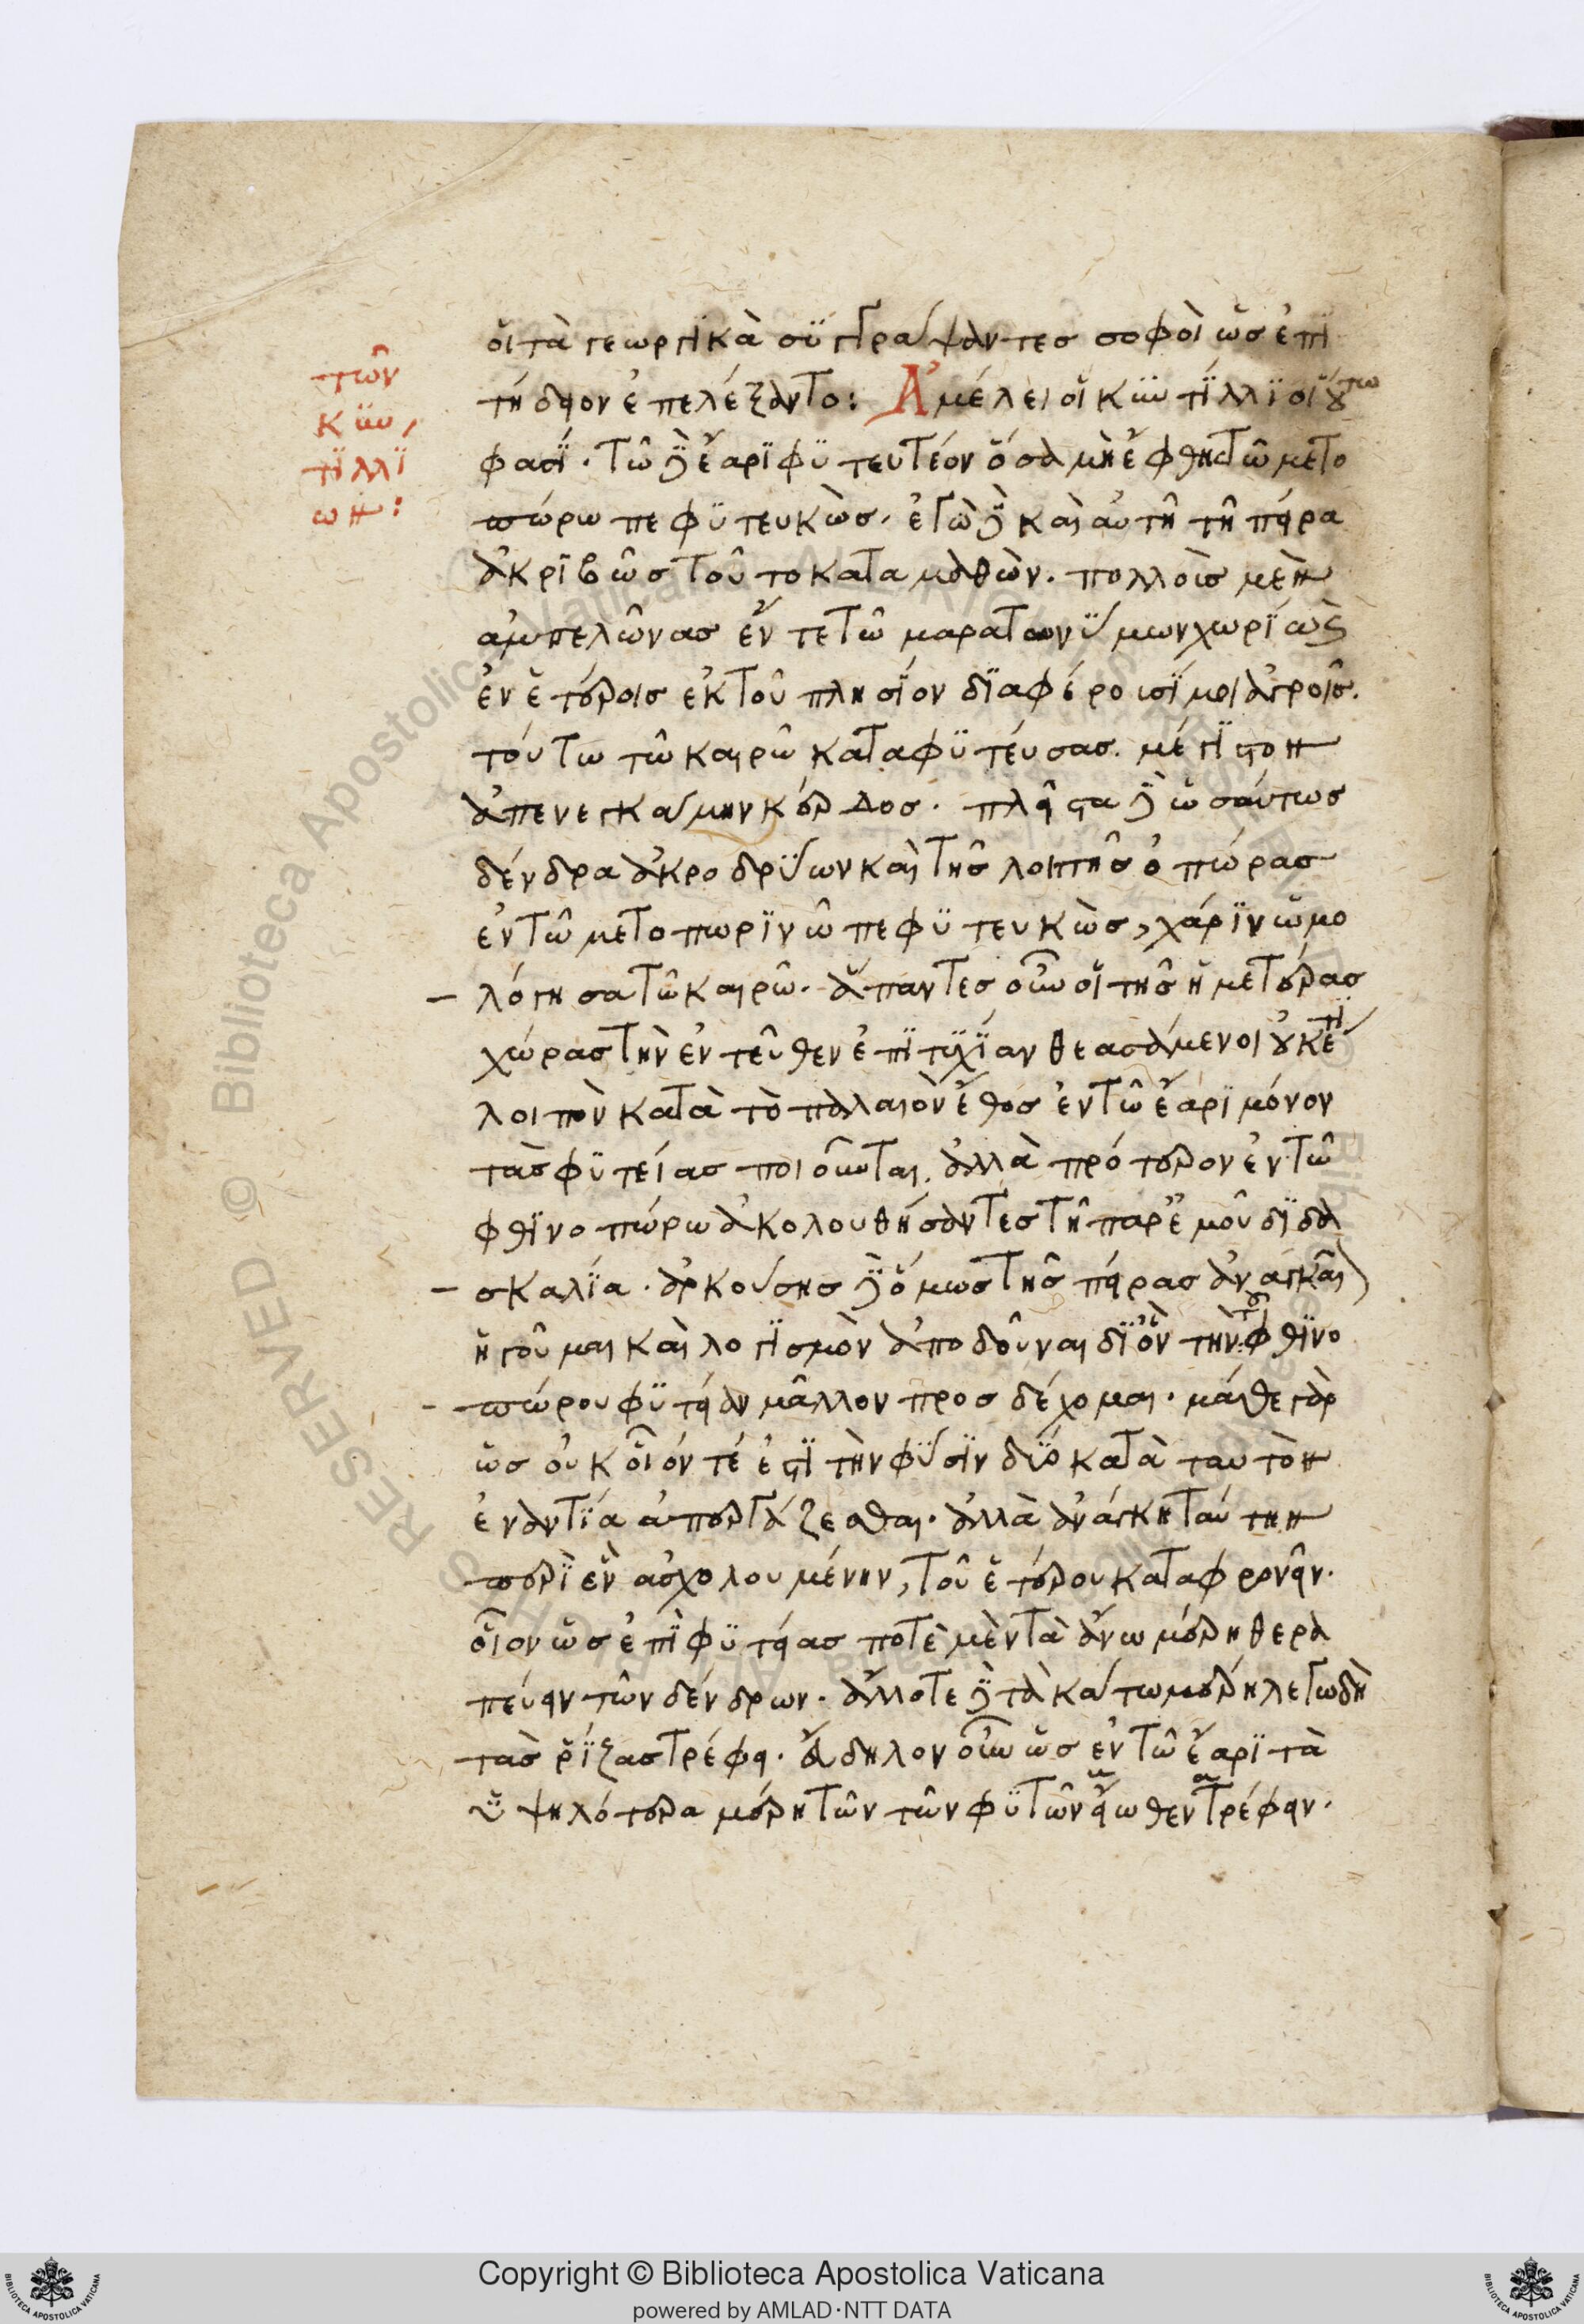 οἱ τὰ γεωργικὰ συγγράψαντες σοφοὶ ὡς ἐπι
τήδειον ἐπελέξαντο: Ἀμέλει οἱ Κυντίλλιοι οὕτω
φασί. τῷ δὲ ἔαρι φυτευτέον ὅσα μὴ ἔφθης τῷ μετο
πώρω πεφυτευκὼς. ἐγὼ δὲ καὶ αὐτῆ τῆ πείρα
ἀκριβῶς τοῦτο καταμαθὼν. πολλοὺς μὲν
ἀμπελῶνας ἔν τε τῶ μαρατωνύμων χωρίω καὶ
ἐν ἑτέροις ἐκ τοῦ πλησίον διαφέρουσί μοι ἀγροῖς.
τούτω τῶ καιρῶ καταφυτεύσας. μέγιστον
ἀπενεγκάμην κέρδος. πλεῖστα δὲ ὡσαύτως
δένδρα ἀκροδρύων καὶ τῆς λοιπῆς ὀπώρας
ἐν τῶ μετοπωρινῶ πεφυτευκὼς, χάριν ὡμο
λόγησα τῶ καιρῶ. ἅπαντες οὖν οἱ τῆς ἡμετέρας
χώρας τὴν ἐντεῦθεν ἐπιτυχίαν θεασάμενοι οὐκέτι
λοιπὸν κατὰ τὸ παλαιὸν ἔθος ἐν τῶ ἔαρι μόνον
τὰς φυτείας ποιοῦνται. ἀλλὰ πρότερον ἐν τῶ
φθινοπώρω ἀκολουθήσαντες τῆ παρ' ἐμοῦ διδα
σκαλία. ἀρκούσης δὲ ὅμως τῆς πείρας ἀναγκαῖ
ἡγοῦμαι καὶ λογισμὸν ἀποδοῦναι δι' ὃν τὴν τοῦ φθινο
πώρου φυτείαν μᾶλλον προσδέχομαι. μάθε γὰρ
ὡς οὐκ οἷόν τέ ἐστι τὴν φύσιν δύο κατὰ ταυτὸν
ἐναντία ἀπεργάζεσθαι. ἀλλὰ ἀνάγκη ταύτην
περὶ ἓν ἀσχολουμένην, τοῦ ἑτέρου καταφρονεῖν.
οἷον ὡς ἐπὶ φυτείας ποτὲ μὲν τὰ ἄνω μέρη θερα
πεύειν τῶν δένδρων. ἄλλοτε δὲ τὰ κάτω μέρη λέγω δὴ
τὰς ῥίζας τρέφει. ἄδηλον οὖν ὡς ἐν τῶ ἔαρι τὰ
ὑψηλότερα μέρη τῶν τῶν φυτῶν εἴωθεν τρέφειν.
τῶν
Κυν
τιλλί
ων: